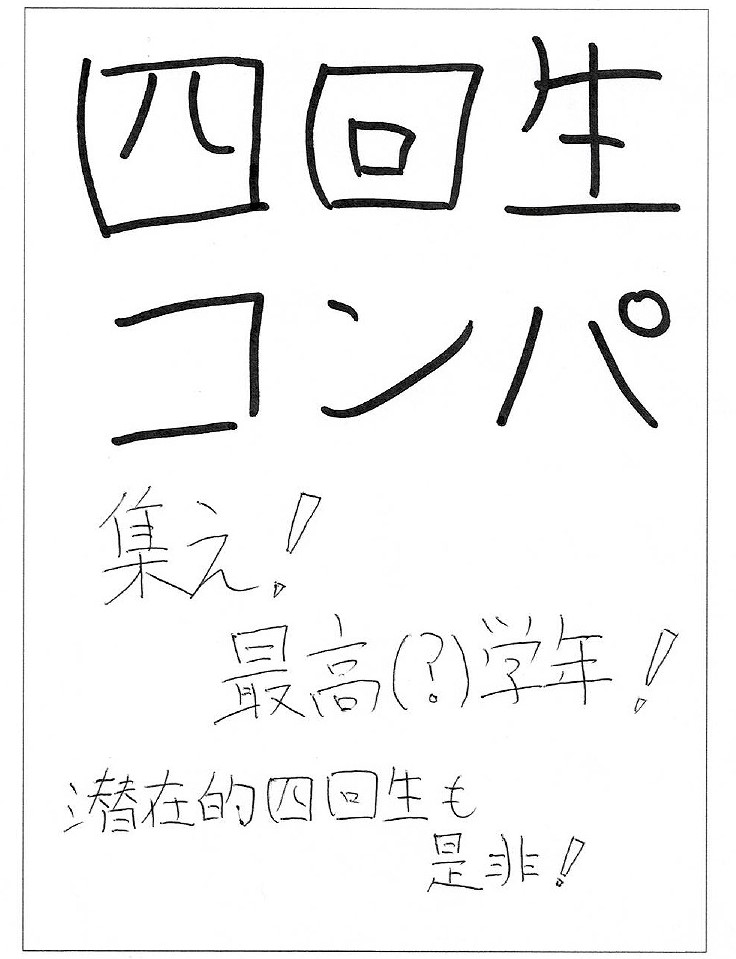 四回生
コンパ
集え!
最高(?)学年!
潜在的四回生も
是非!